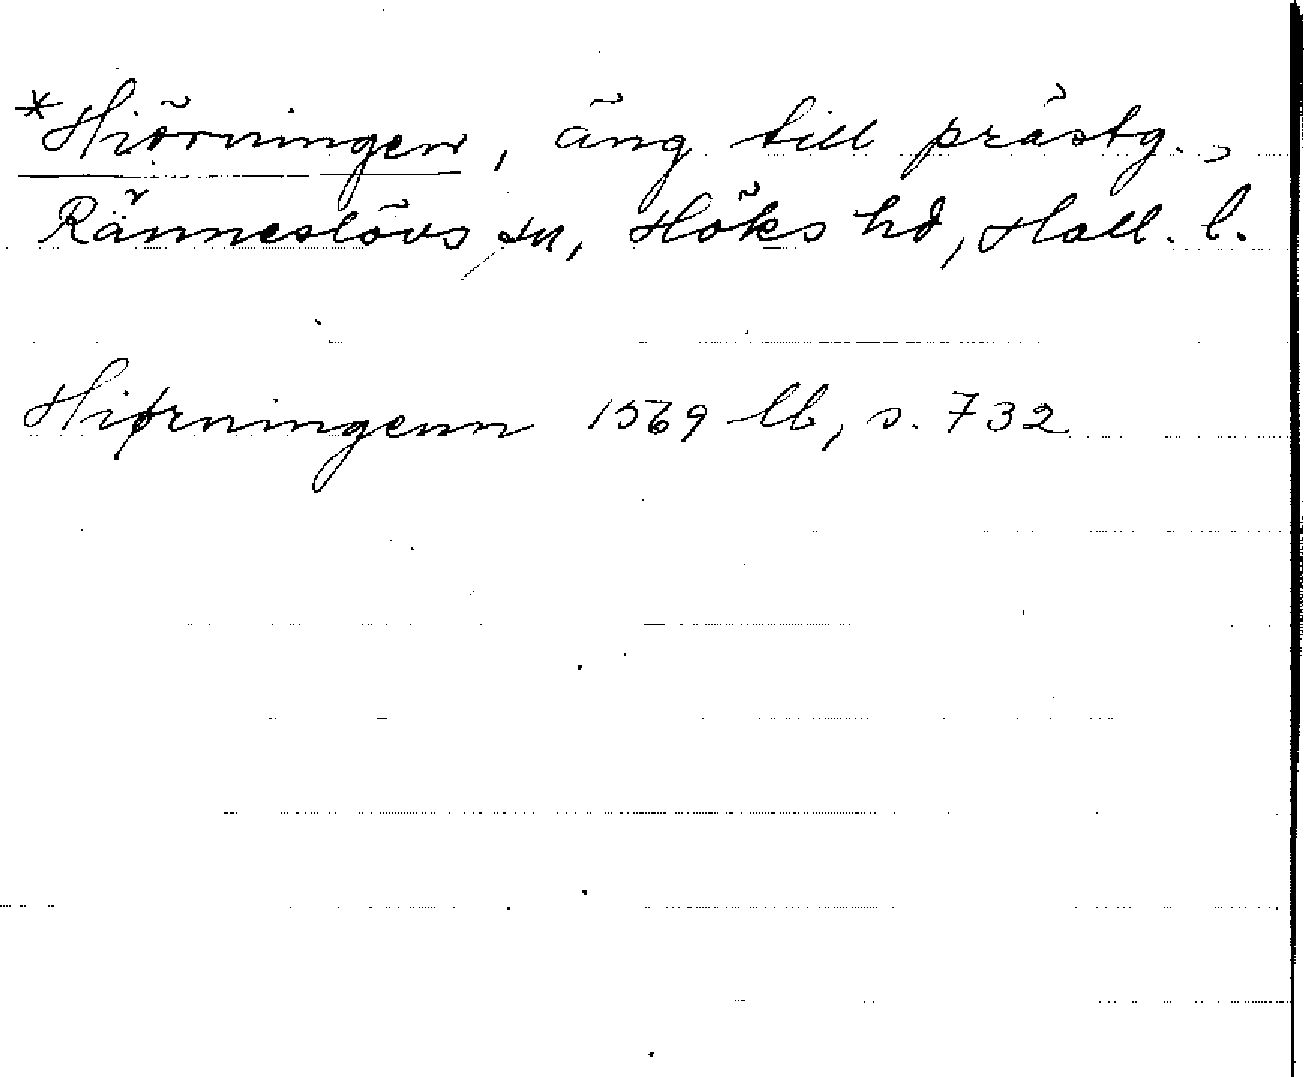 *Hiörningen, äng till prästg.,
Ränneslövs sn, Höks hd, Hall. l.
Hiørningenn 1569 lb, s. 732